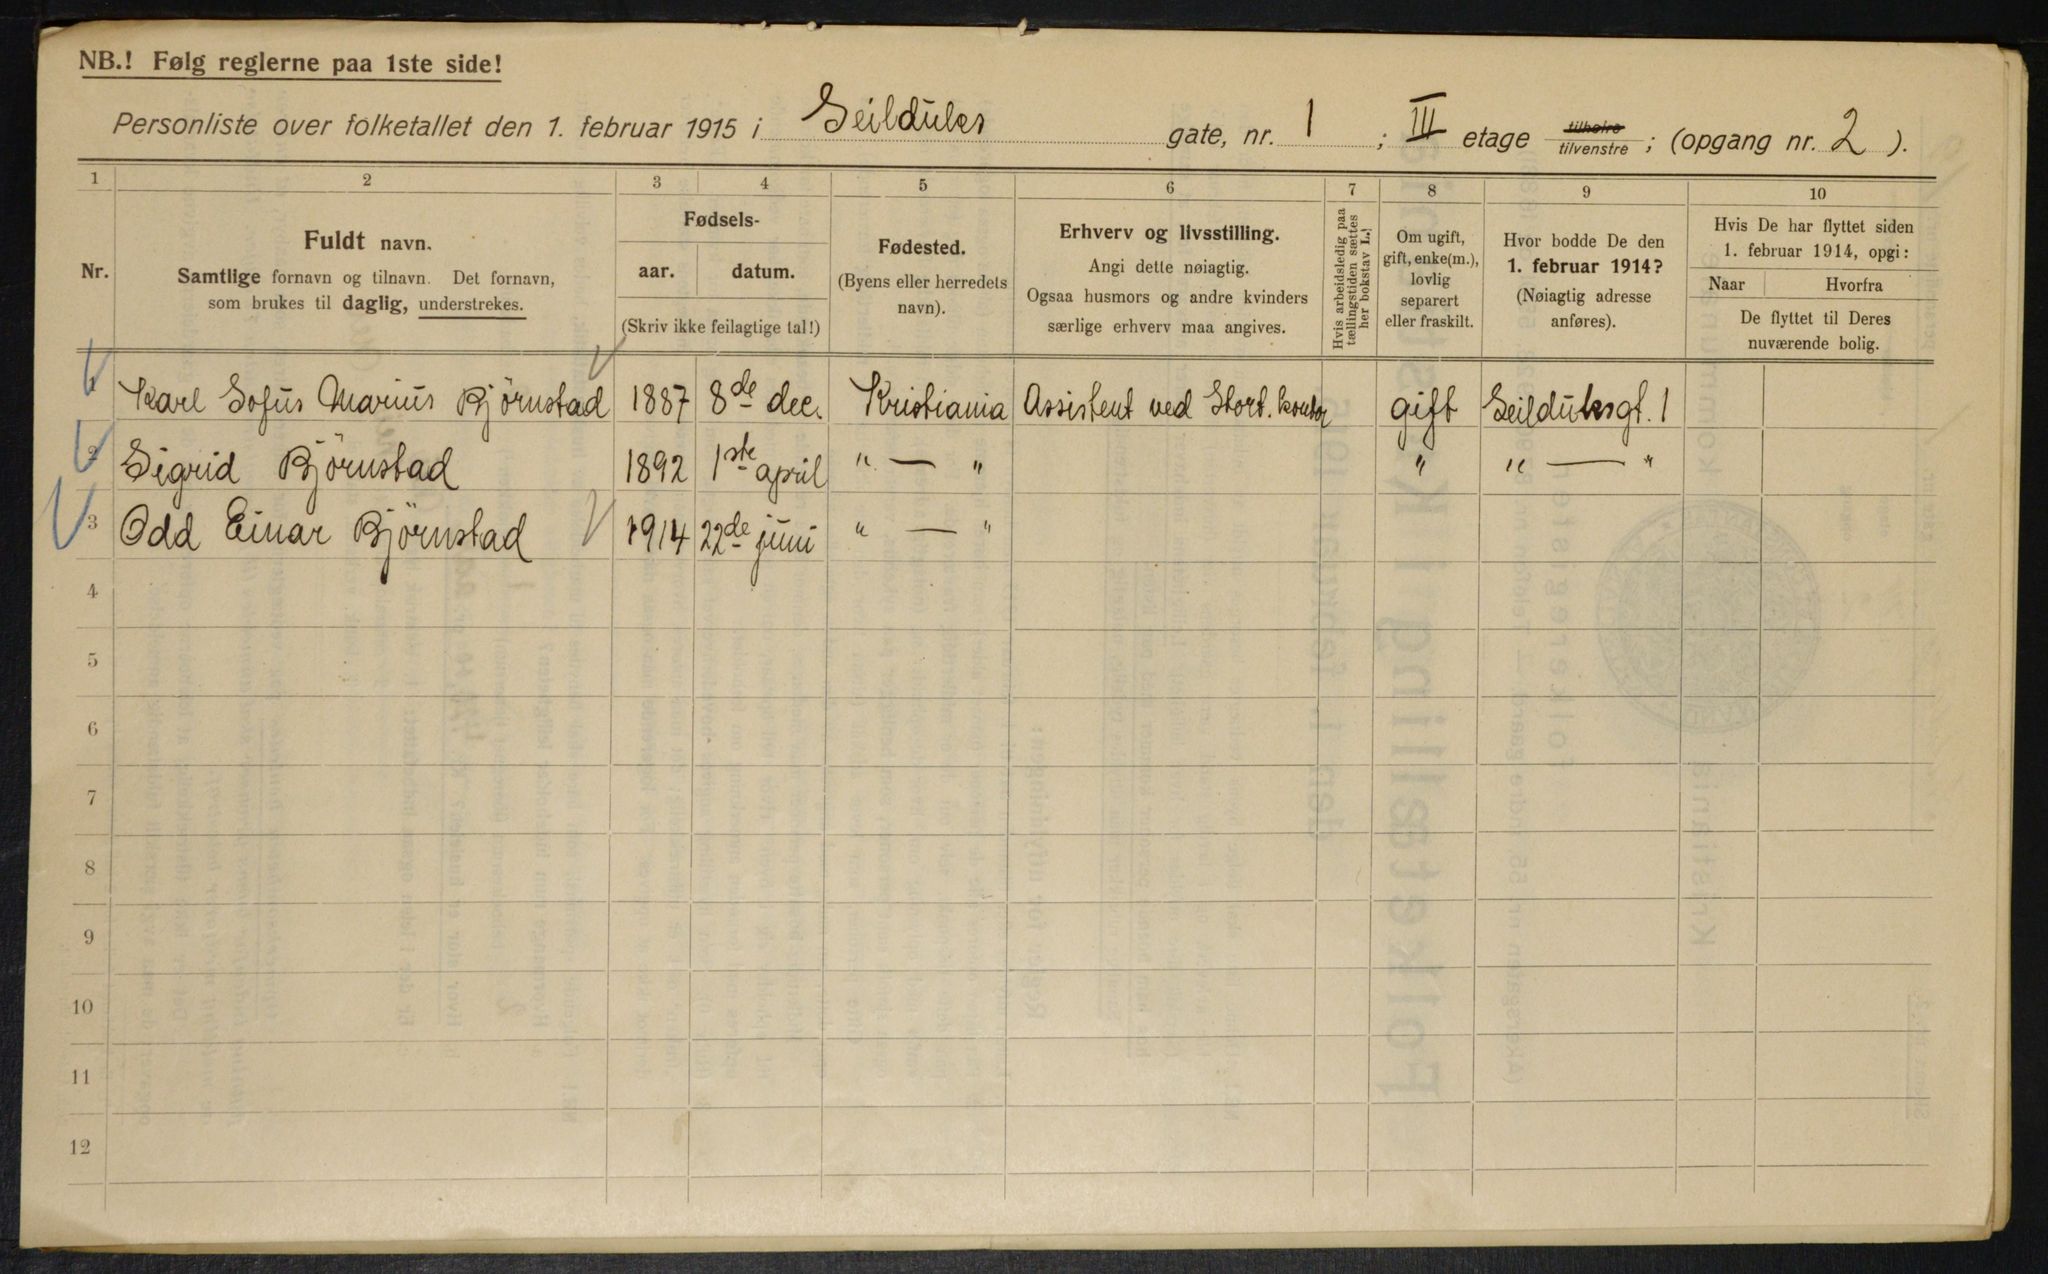 NB.! Følg reglerne paa 1ste side!
Personliste over folketallet den 1. februar 1915 i Seilduks gate, nr. 1 ; III etage tilhøire tilvenstre ; (opgang nr. 2 ).
1 2 3 4 5 6 7 8 9 10
Nr.
Fuldt navn.
Samtlige fornavn og tilnavn. Det fornavn,
som brukes til daglig, understrekes.
Fødsels-
aar. datum.
(Skriv ikke feilagtige tal!)
Fødested.
(Byens eller herredets
navn).
Erhverv og livsstilling.
Angi dette nøiagtig.
Ogsaa husmors og andre kvinders
særlige erhverv maa angives.
Hvis arbeidsledig paa
tællingstiden sættes
her bokstav L.)
Om ugift,
gift, enke(m.),
lovlig
separert
eller fraskilt.
Hvor bodde De den
1. februar 1914?
(Nøiagtig adresse
anføres).
Hvis De har flyttet siden
1. februar 1914, opgi:
Naar Hvorfra
De flyttet til Deres
nuværende bolig.
1 Karl Sofus Marius Björnstad 1887 8de dec. Kristiania Assistent ved Stort. kontor gift Seilduksgt. 1
2 Sigrid Björnstad 1892 1ste april " — " " " — "
3 Odd Einar Björnstad 1914 22de juni " — "
4
5
6
7
8
9
10
11
12